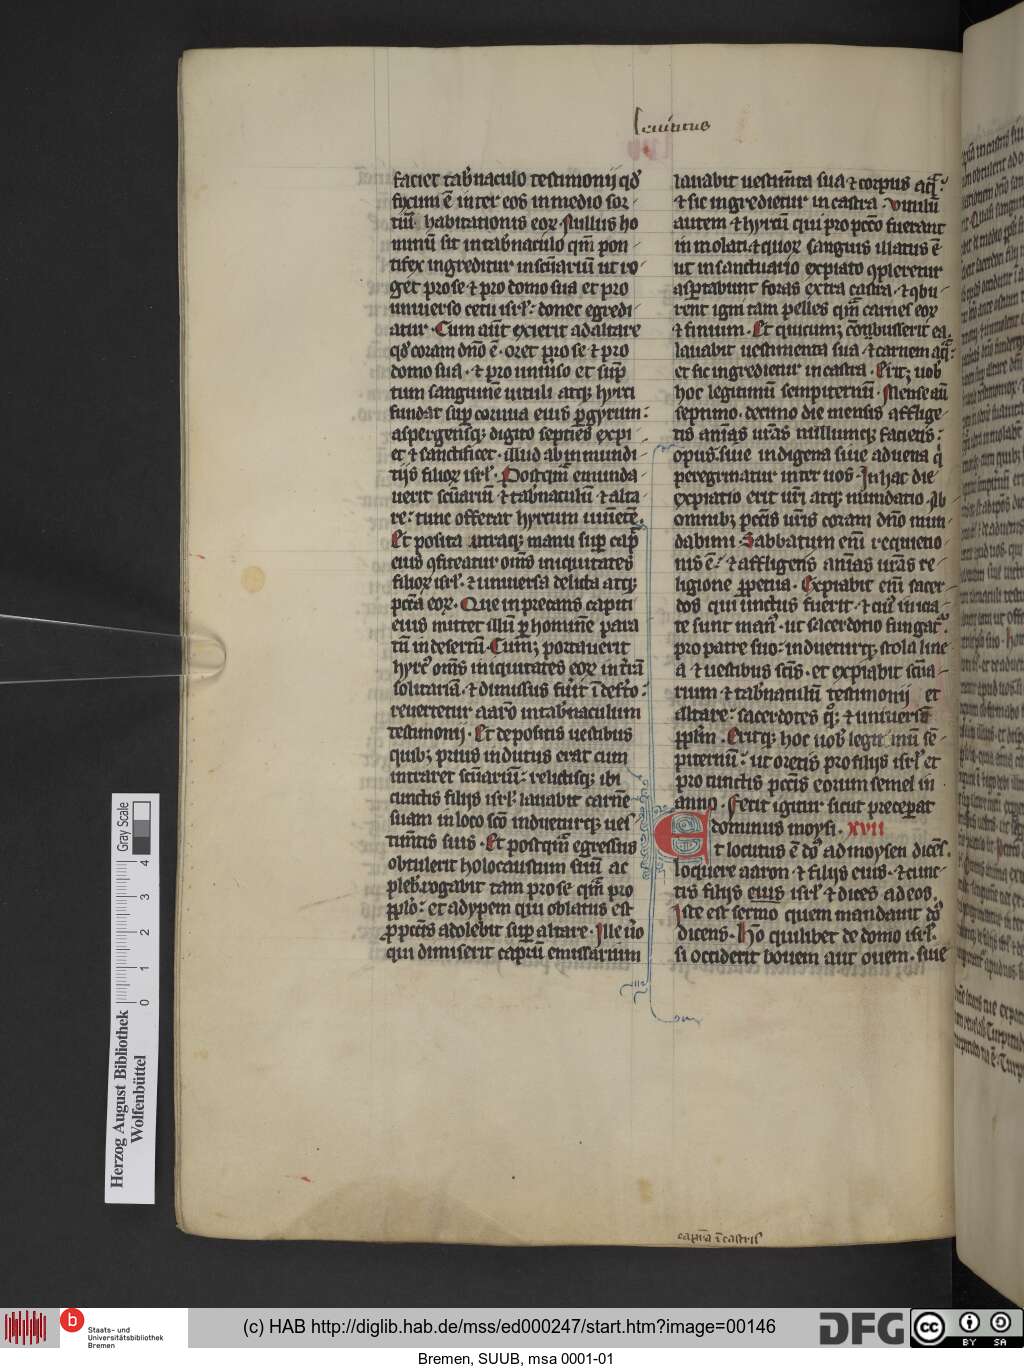 Leuiticus
faciet tab̄naculo testimonij qd̓
fixum ē inter eos in medio sor-
tiū. habitationis eoꝝ. Nullus ho
minū sit in tab̄naculo qn̄ pon-
tifex ingreditur in sc̄uariū ut ro-
get pro se ⁊ pro domo sua et pro
uniuerso cetu isrl̓: donec egredi-
atur. Cum aūt exierit ad altare
qd̓ coram dn̄o ē. oret pro se ⁊ pro
domo sua. ⁊ pro uniu̓so et sup̄
tum sanguinē uituli atqꝫ hyrci
fundat sup̄ cornua eius ꝑ gyrum:
aspergensqꝫ digito septies expi-
et ⁊ sanctificet. illud ab inmundi-
tijs filioꝝ isrl̓. Postqm̄ emunda-
uerit sc̄uariū ⁊ tab̄naculū ⁊ alta-
re: tunc offerat hyrcum uiuētē.
Et posita utraqꝫ manu sup̄ cap̄
eius ꝯfiteatur om̄s iniquitates
filioꝝ isrl̓. ⁊ uniuersa delicta atqꝫ
pcc̄a eoꝝ. Que inprecans capiti
eius mittet illū ꝑ hominē para
tū in desertū. Cumqꝫ portauerit
hyrc̓ om̄s iniquitates eoꝝ in tr̄ā
solitariā. ⁊ dimissus fu̓it ī des̓to:
reuertetur aarō in tab̄naculum
testimonij. Et depositis uestibus
quibꝫ prius indutus erat cum
intraret sc̄uariū: relictisqꝫ ibi
cunctis filijs isrl̓ lauabit carnē
suam in loco sc̄o indueturqꝫ ues
timētis suis. Et postqm̄ egressus
obtulerit holocaustum suū ac
pleb̓. rogabit tam pro se qm̄ pro
pp̄lo: et adypem qui oblatus est
pro pcc̄is adolebit sup̄ altare. Ille u̓o
qui dimiserit caprū emissarium
lauabit uestim̄ta sua ⁊ corpus aq̄:
⁊ sic ingredietur in castra. Vitulū
autem ⁊ hyrcū qui pro pcc̄o fuerant
inmolati. ⁊ quoꝝ sanguis illatus ē
ut in sanctuario expiatio ꝯpleretur
asportabunt foras extra castra. ⁊ ꝯbu-
rent igni tam pelles qm̄ carnes eoꝝ
⁊ fimum. Et quicumqꝫ cōbusserit ea.
lauabit uestimenta sua ⁊ carnem aq̄:
et sic ingredietur in castra. Eritqꝫ uob̓
hoc legitimū sempiternū. Mense aū
septimo. decimo die mensis afflige-
tis anīas ur̄as nullumqꝫ facietis:
opus. siue indigena siue aduena q̄
peregrinatur inter uos. In hac die
expiatio erit ur̄i atqꝫ mundatio. Ab
omnibꝫ pcc̄is ur̄is coram dn̄o mun-
dabimi. Sabbatum em̄ requietio-
nis ē: ⁊ affligetis anīas ur̄as re-
ligione ꝑpetua. Expiabit em̄ sacer-
dos qui unctus fuerit. ⁊ cui̓ inicia-
te sunt man̓. ut sacerdotio fungat̓.
pro patre suo: indueturqꝫ stola line-
a ⁊ uestibus sc̄is. et expiabit sc̄ua-
rium ⁊ tab̄naculū testimonij et
altare: sacerdotes qꝫ ⁊ uniuersū
pp̄lm. Eritqꝫ hoc uob̓ legitimū sē-
piternū: ut oretis pro filijs isrl̓ et
pro cunctis pcc̄is eorum semel in
anno. Fecit igitur sicut preceperat
dominus moysi. XVII
Et locutus ē dn̄s ad moysen dicēs.
loquere aaron ⁊ filijs eius. ⁊ cunc-
tis filijs eius isrl̓ ⁊ dices ad eos.
Iste est sermo quem mandauit dn̄s
dicens. Ho̓ quilibet de domo isrl̓.
si occiderit bouem aut ouem. siue
capra ī castris
Gray Scale
4
3
2
1
0
Herzog August Bibliothek
Wolfenbüttel
b Staats- und
Universitätsbibliothek
Bremen
(c) HAB http://diglib.hab.de/mss/ed000247/start.htm?image=00146
DFG
cc BY SA
Bremen, SUUB, msa 0001-01